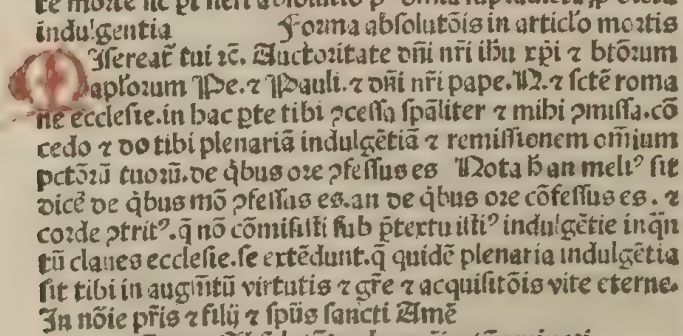 indulgentia Forma absolutōis in articlo mortis
MIsereat̄ tui ⁊c̄. Auctoritate dn̄i nr̄i ihū xp̄i ⁊ btōꝝum
aplorum Pe. ⁊ Pauli. ⁊ dn̄i nr̄i pape. N. ⁊ sctē roma
ne ecclesie. in hac ꝑte tibi ꝯcessa spāliter ⁊ mihi ꝯmissa. cō
cedo ⁊ do tibi plenariā indulgētiā ⁊ remissionem om̄ium
pctōꝝū tuoꝝū. de q̇bus ore ꝯfessus es Nota h̄ an meliꝰ sit
dicē de q̇bus mō ꝯfessus es. an de q̇bus ore cōfessus es. ⁊
corde ꝯtritꝰ. q̄ nō cōmisisti sub p̄textu istiꝰ indulgētie inq̄n
tū claues ecclesie. se extēdunt. q̄ quidē plenaria indulgētia
sit tibi in augm̄tū virtutis ⁊ gr̄e ⁊ acquisitōis vite eterne.
In nōie pr̄is ⁊ filij ⁊ sp̄us sancti Amē